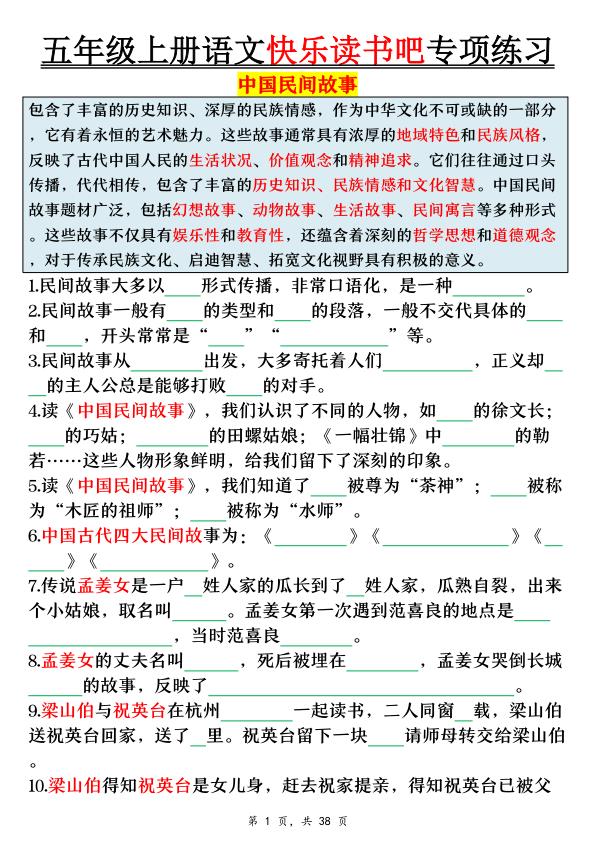 五年级上册语文快乐读书吧专项练习
中国民间故事
包含了丰富的历史知识、深厚的民族情感，作为中华文化不可或缺的一部分
，它有着永恒的艺术魅力。这些故事通常具有浓厚的地域特色和民族风格，
反映了古代中国人民的生活状况、价值观念和精神追求。它们往往通过口头
传播，代代相传，包含了丰富的历史知识、民族情感和文化智慧。中国民间
故事题材广泛，包括幻想故事、动物故事、生活故事、民间寓言等多种形式
。这些故事不仅具有娱乐性和教育性，还蕴含着深刻的哲学思想和道德观念
，对于传承民族文化、启迪智慧、拓宽文化视野具有积极的意义。
1.民间故事大多以____形式传播，非常口语化，是一种________。
2.民间故事一般有____的类型和____的段落，一般不交代具体的____
和____，开头常常是“____”“____________”等。
3.民间故事从________出发，大多寄托着人们__________，正义却__
__的主人公总是能够打败____的对手。
4.读《中国民间故事》，我们认识了不同的人物，如____的徐文长；
____的巧姑；________的田螺姑娘；《一幅壮锦》中________的勒
若……这些人物形象鲜明，给我们留下了深刻的印象。
5.读《中国民间故事》，我们知道了____被尊为“茶神”；____被称
为“木匠的祖师”；____被称为“水师”。
6.中国古代四大民间故事为：《________》《______________》《__
____》《____________》。
7.传说孟姜女是一户__姓人家的瓜长到了__姓人家，瓜熟自裂，出来
个小姑娘，取名叫______。孟姜女第一次遇到范喜良的地点是____
________________，当时范喜良________。
8.孟姜女的丈夫名叫______，死后被埋在________，孟姜女哭倒长城
______的故事，反映了__________________________________。
9.梁山伯与祝英台在杭州________一起读书，二人同窗__载，梁山伯
送祝英台回家，送了__里。祝英台留下一块____请师母转交给梁山伯
。
10.梁山伯得知祝英台是女儿身，赶去祝家提亲，得知祝英台已被父
第 1 页，共 38 页